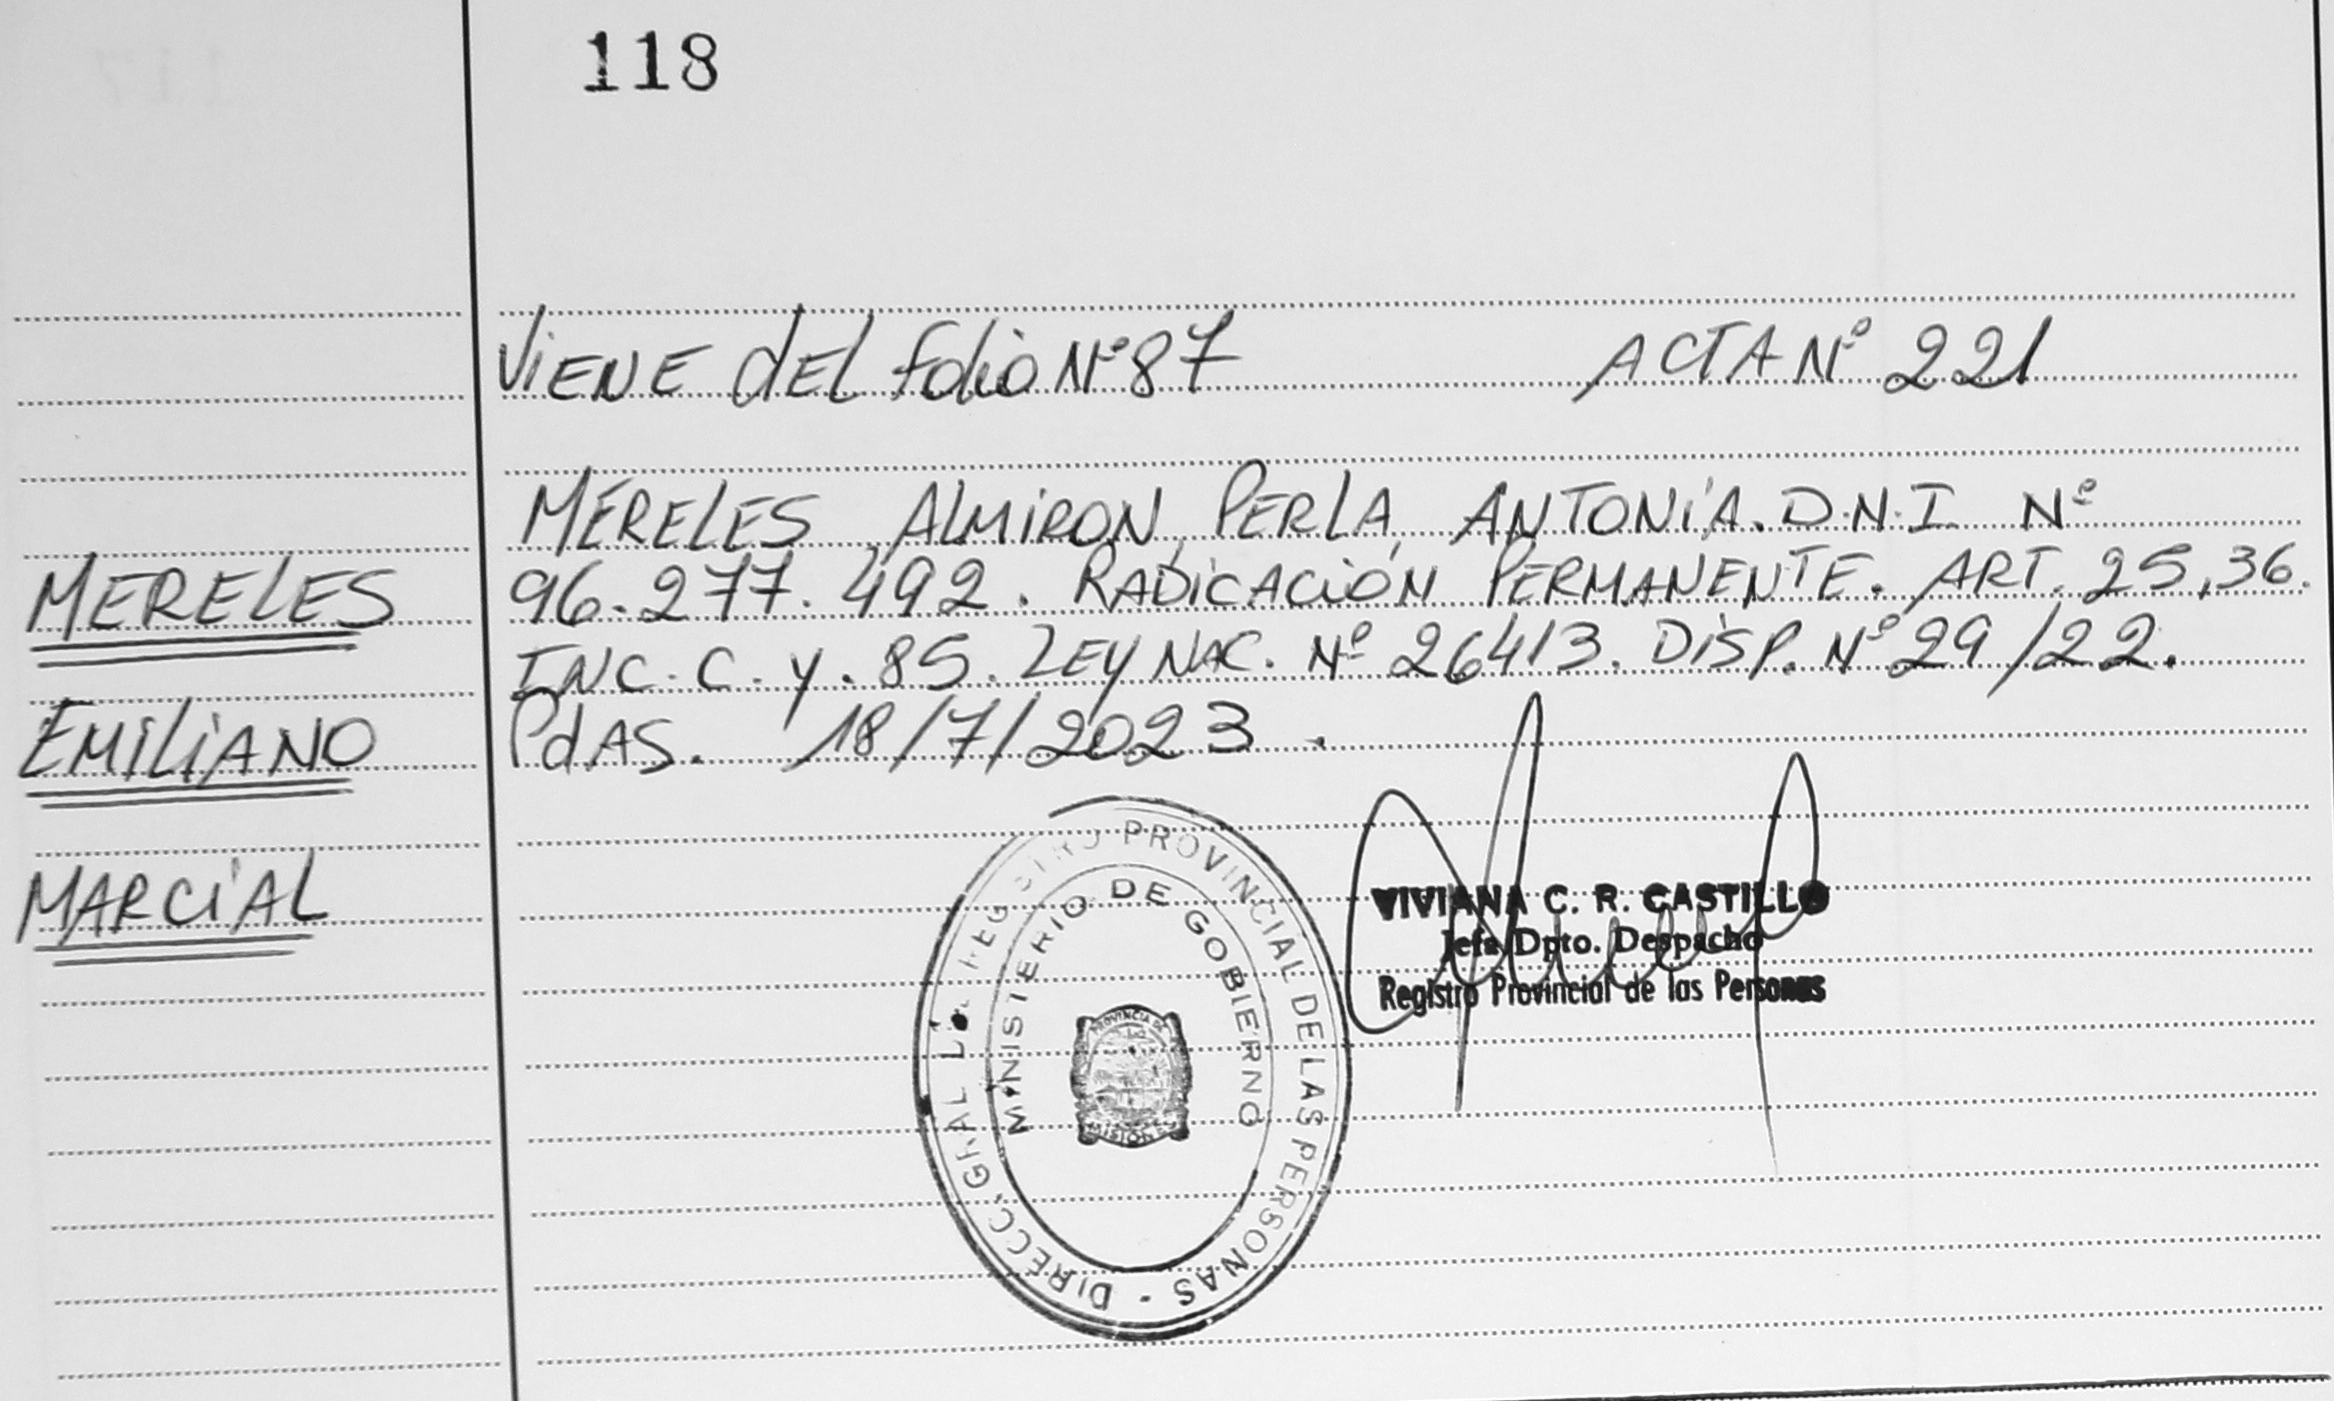 118
Viene del folio Nº 87 ACTA Nº 221
MERELES ALMIRON, PERLA ANTONIA. D.N.I. Nº
96.277.492. RADICACIÓN PERMANENTE. ART. 25, 36.
INC. C. y. 85. LEY NAC. Nº 26413. DISP. Nº 29/22.
PdAS. 18/7/2023.
MERELES
EMILIANO
MARCIAL
DIRECC. GRAL REGISTRO PROVINCIAL DE LAS PERSONAS -
MINISTERIO DE GOBIERNO
PROVINCIA DE
MISIONES
VIVIANA C. R. CASTILLO
Jefa Dpto. Despacho
Registro Provincial de las Personas